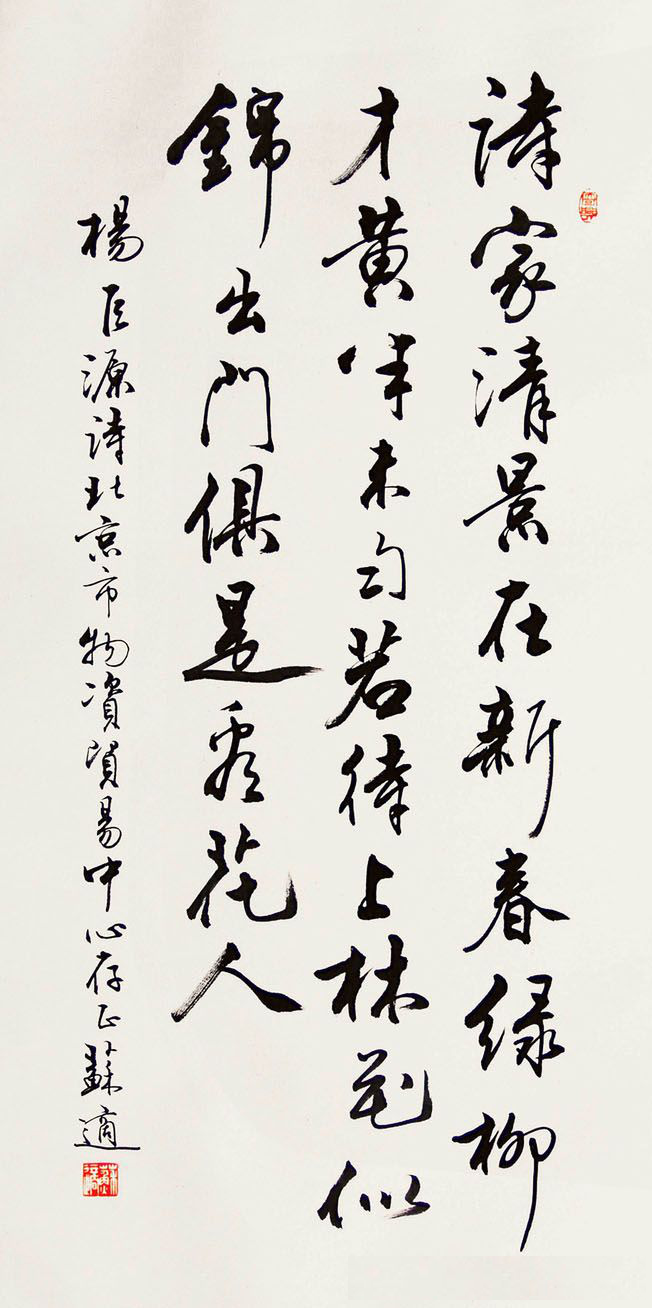 詩家清景在新春綠柳
才黄半未勻若待上林花似
錦出門俱是看花人
楊巨源詩北京市物資貿易中心存正蘇適